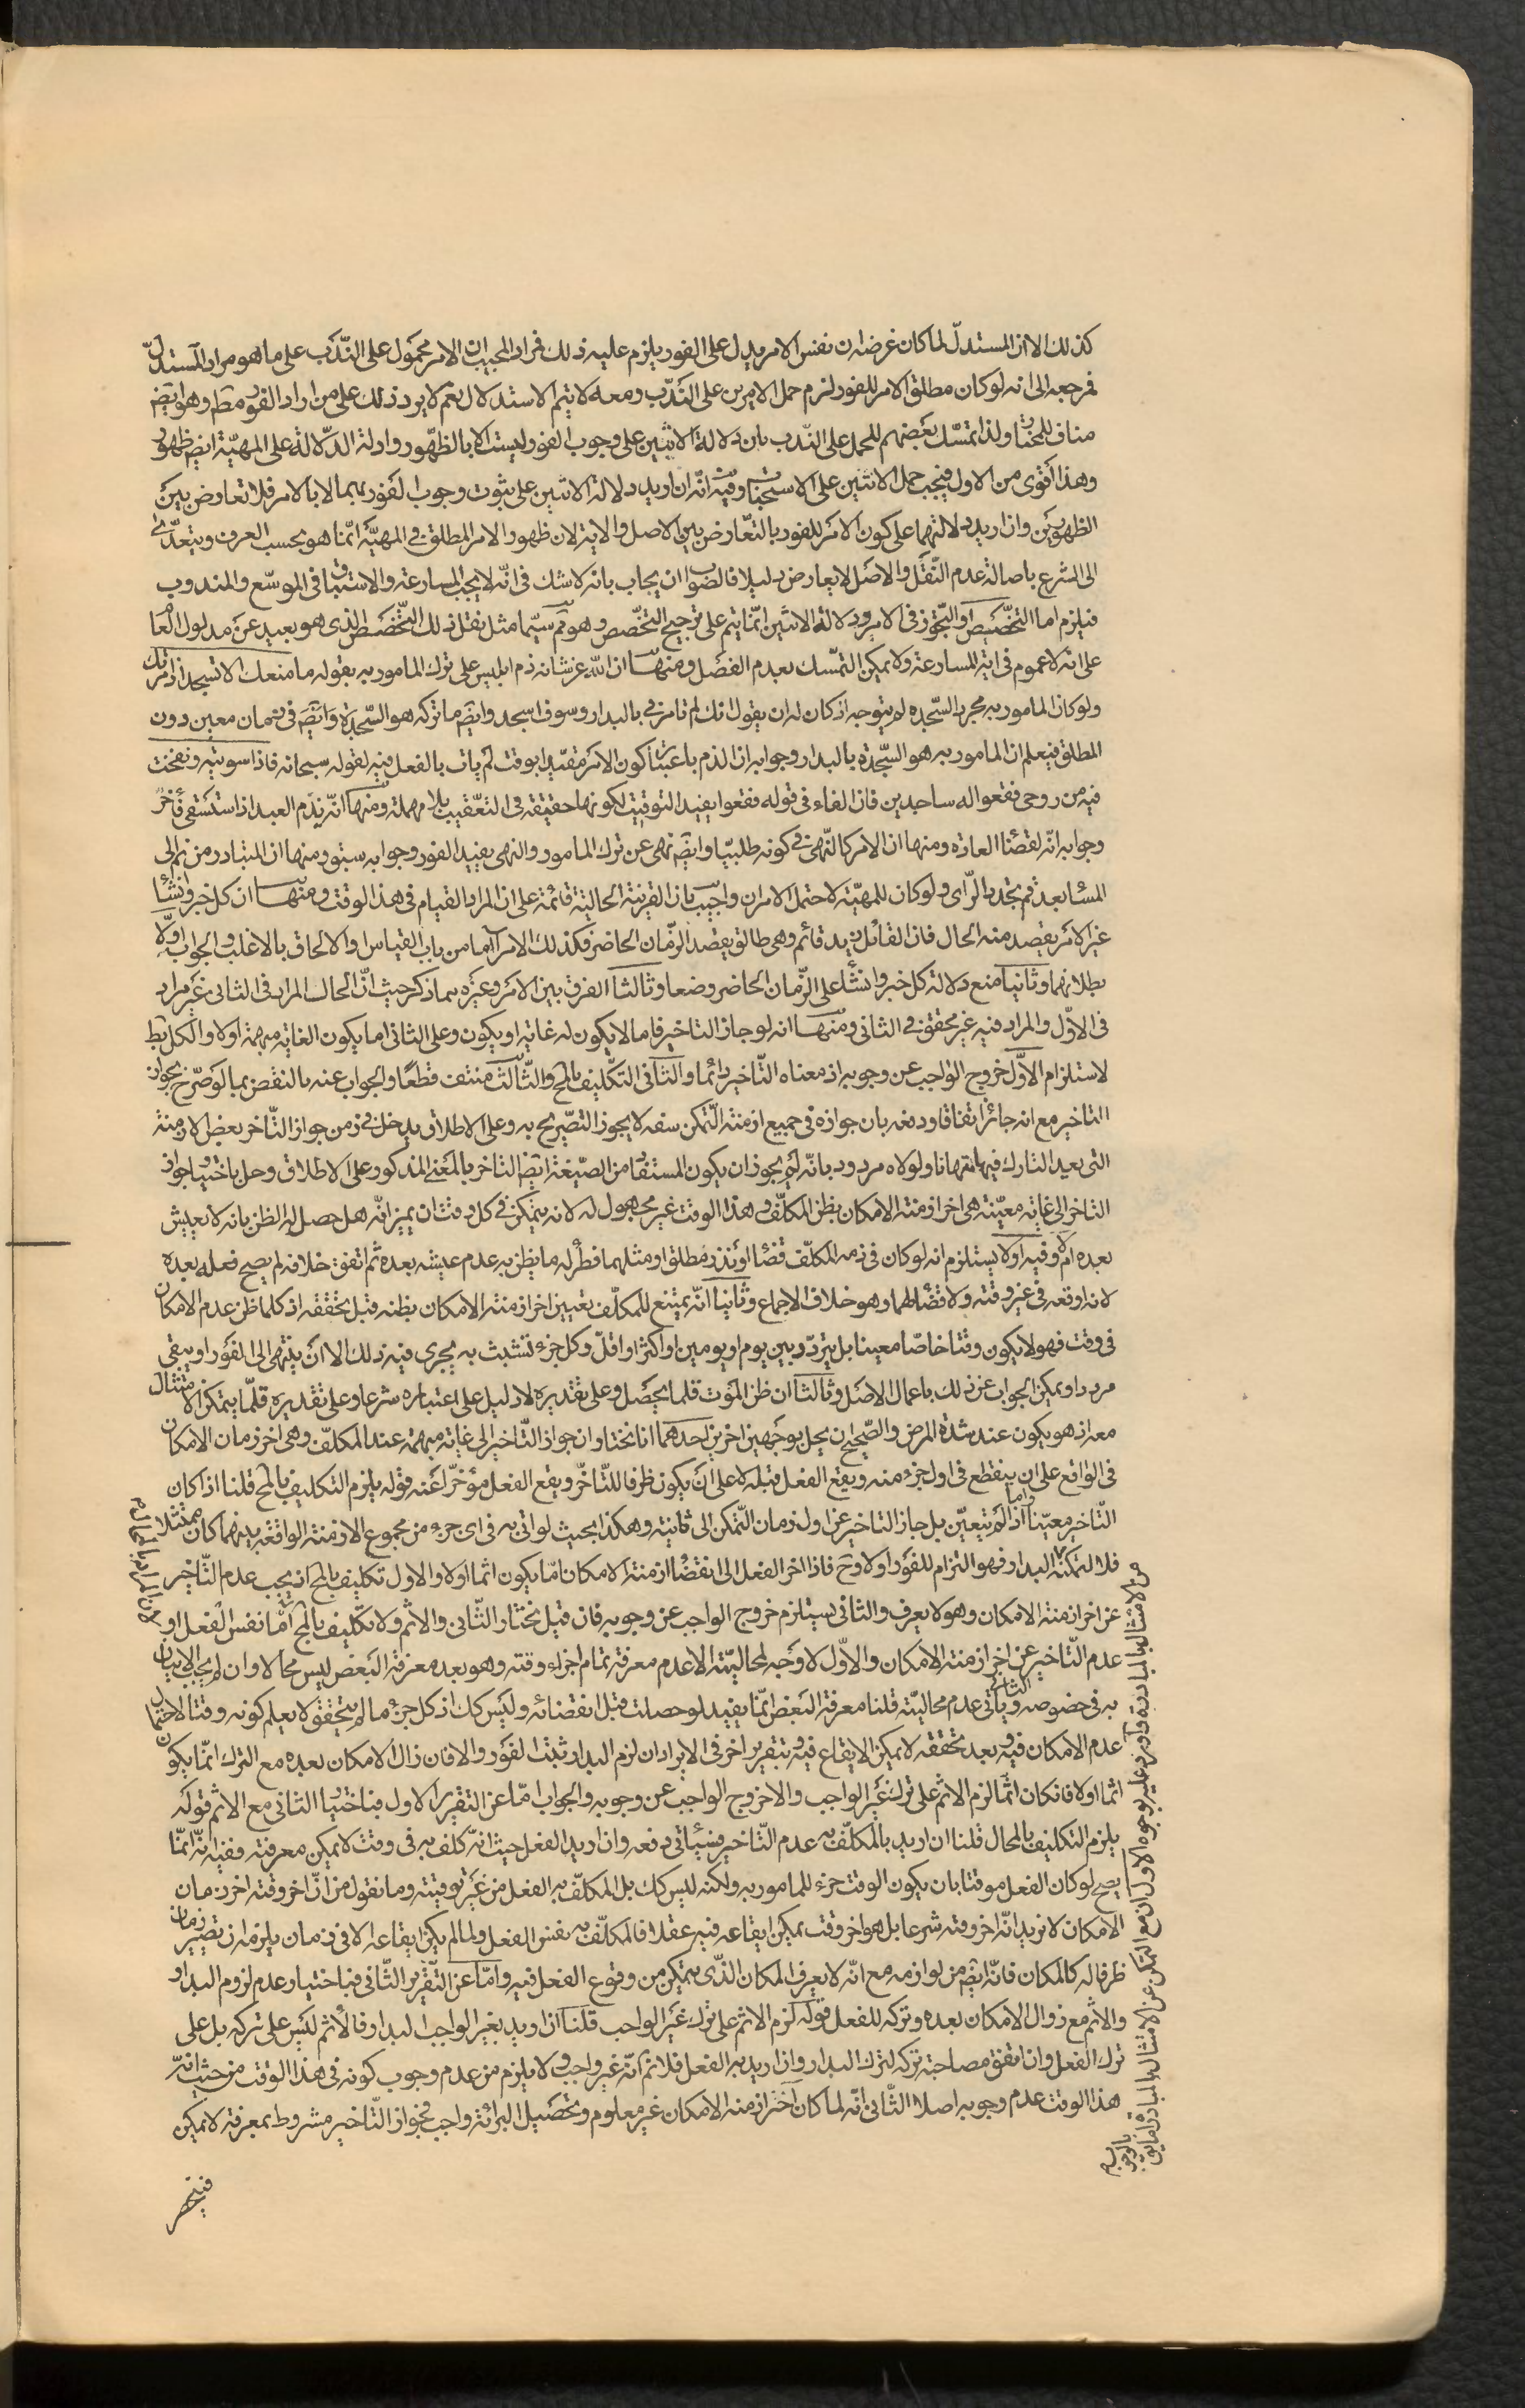 كذلك الا ان المستدلّ لما كان غرضه ان نفس الامر يدل على الفور يلزم عليه ذلك فمراد المجيب ان الامر محمول على النّدب على ما هو مراد المستدلّ
فمرجعه الى انه لو كان مطلق الامر للفور لزم حمل الامرين على النّدب ومعه لا يتم الاستدلال نعم لا يرد ذلك على من اراد الفور مطم وهو ايضم
مناف للمختار ولذا تمسّك بعضهم للحمل على النّدب بان دلالة الاثنين على وجوب الفور ليست الا بالظّهور وادلة الدّلالة على المهيّة ايضم ظهور
وهذا اقوى من الاول فيجب حمل الاثنين على الاستحباب وفيه انّه ان اريد دلالة الاثنين على ثبوت وجوب الفور بهما لا بالامر فلا تعارض بين
الظهورين وان اريد دلالتهما على كون الامر للفور بالتعّارض بين الاصل والاية لان ظهور الامر المطلق في المهيّة انّما هو بحسب العرف ويتعدّى
الى الشرع باصالة عدم النّقل والاصل لا يعارض دليلا فالصواب ان يجاب بانه لا شك في انّه لا يجب المسارعة والاستباق في الموسّع والمندوب
فيلزم اما التخّصيص او التجّوز في الامر ودلالة الاثنين انّما يتم على ترجيح التخّصيص وهو ثم سيّما مثل نقل ذلك التّخصيص الذي هو بعيد عن مدلول العام
على انه لا عموم في اية المسارعة ولا يمكن التمسّك بعدم الفصل ومنها ان الله عز شانه ذم ابليس على ترك المامور به بقوله ما منعك الا تسجد اذ امرتك
ولو كان المامور به مجرد السّجدة لم يتوجه اذ كان له ان يقول انك لم تامرني بالبدار وسوف اسجد وايضم ما تركه هو السّجدة وايضم في زمان معين دون
المطلق فيعلم ان المامور به هو السّجدة بالبدار وجوابه ان الذم باعتبار كون الامر مقيّدا بوقت لم يات بالفعل فيه لقوله سبحانه فاذا سويته ونفخت
فيه من روحى فقعوا له ساجدين فان الفاء في قوله فقعوا يفيد التوقيت لكونها حقيقة في التعّقيب بلا مهملة ومنها انّه يذم العبد اذا استسقى فاخر
وجوابه انّه لقضاء العادة ومنها ان الامر كالنّهي في كونه طلبيّا وايضم نهى عن ترك المامور والنهى يفيد الفور وجوابه سبق ومنها ان المتبادر من قم الى
المساء بعد ثم تجدد الرّاى ولو كان للمهيّة لاحتمل الامران واجيب بان القرينة الحالية قائمة على ان المراد القيام في هذا الوقت ومنها ان كل خبر وانشاء
غير الامر يقصد منه الحال فان القائل زيد قائم وهى طالق يقصد الزّمان الحاضر فكذلك الامر اما من باب القياس او الالحاق بالاغلب والجواب اولا
بطلانهما وثانيا منع دلالة كل خبر وانشاء على الزّمان الحاضر وضعا وثالثا الفرق بين الامر وغيره بما ذكر حيث انّ الحال المراد في الثانى غير مراد
في الاوّل والمراد فيه غير محقق في الثانى ومنها انه لو جاز التاخير فاما لا يكون له غاية او يكون وعلى الثانى اما يكون الغاية مبهمة اولا والكل بط
لاستلزام الاوّل خروج الواجب عن وجوبه اذ معناه التّاخير دائما والثانى التكّليف بالمح والثّالث منتف قطعًا والجواب عنه بالنقض بما لو صرّح بجواز
التاخير مع انه جائز اتفاقا ودفعه بان جوازه في جميع ازمنة التّمكن سفه لا يجوز التصّريح به وعلى الاطلاق يدخل في زمن جواز التّاخر بعض الازمنة
التى يعيد التارك فيها متهاونا ولولاه مردود بانّه لم يجوز ان يكون المستفاد من الصيّغة ايضم التاخر بالمعنى المذكور وعلى الاطلاق وحل باختيار جواز
التاخر الى غاية معيّنة هى اخر ازمنة الامكان بظن المكلّف وهذا الوقت غير مجهول له لانه يتمكن في كل وقت ان يميز انّه هل حصل له الظن بانه لا يعيش
بعده ام لا وفيه اولا يستلزم انه لو كان في ذمه المكلّف قضاء او نذر مطلق او مثلهما فطرأ له ما يظن به عدم عيشه بعده ثم اتفق خلافه لم يصح فعله بعده
لانه اوقعه في غير وقته ولا قضاء لهما وهو خلاف الاجماع وثانيا انّه يمتنع للمكلّف تعيين اخر ازمنة الامكان بظنه قبل تحققه اذ كلما ظن عدم الامكان
في وقت فهو لا يكون وقتا خاصّا معينا بل يتردّد بين يوم او يومين او اكثر او اقلّ وكل جزء تشبث به يجرى فيه ذلك الا ان ينتهى الى الفور او يبقى
مرددا ويمكن الجواب عن ذلك باعمال الاصل وثالثا ان ظن الموت قلما يحصل وعلى تقديره لا دليل على اعتباره شرعا وعلى تقديره قلّما يتمكن الامتثال
معه اذ هو يكون عند شدة المرض والصّحيح ان يحل بوجهين اخرين احدهما انا نختار ان جواز التّاخير الى غاية مبهمة عند المكلّف وهى اخر زمان الامكان
في الواقع على ان ينقطع في اول جزء منه ويقع الفعل قبله لا على ان يكون ظرفا للتّاخّر ويقع الفعل مؤخرّا عنه قوله يلزم التكليف بالمح قلنا اذا كان
التّاخير معيّنا اذا ما لم يتعيّن بل جاز التاخير عن اول زمان التّمكن الى ثانيته وهكذا بحيث لو اتى به في اى جزء من مجموع الازمنة الواقعة بينهما كان ممتثلا
فلا لتمكنه البدار فهو التزام للفور اولا وح فاذا اخر الفعل الى انقضاء ازمنة الامكان امّا يكون اثما اولا والاول تكليف بالمح اذ يجب عدم التّاخير
عن اخر ازمنة الامكان وهو لا يعرف والثانى يستلزم خروج الواجب عن وجوبه فان قيل نختار الثّانى والاثم ولا تكّليف بالمح امّا نفس الفعل او
عدم التّاخير عن اخر ازمنة الامكان والاوّل لا وجه لمحاليّته الا عدم معرفة تمام اجزاء وقته وهو بعد معرفة البعض ليس محالا وان لم يجب الاتيان
به في خصوصه وياتى عدم محاليّة الثانى قلنا معرفة البعض انّما يفيد لو حصلت قبل انقضائه وليس كك اذ كل جزء ما لم يتحقق لا يعلم كونه وقتا لاحتمال
عدم الامكان فيه وبعد تحققه لا يمكن الايقاع فيه وبتقرير اخر في الايراد ان لزم البدار ثبت الفور والا فان زال الامكان بعده مع الترك انّما يكون
اثما اولا فان كان اثما لزم الاثم على ترك غير الواجب والا خروج الواجب عن وجوبه والجواب امّا عن التقرير الاول فباختيار الثانى مع الاثم قوله
يلزم التكليف بالمحال قلنا ان اريد بالمكلّف به عدم التّاخير فسيأتى دفعه وان اريد الفعل حيث انّه كلف به في وقت لا يمكن معرفته ففيه انّه انّما
يصح لو كان الفعل موقتا بان يكون الوقت جزء للمامور به ولكنه ليس كك بل المكلّف به الفعل من غير توقيته وما نقول من انّ اخر وقته اخر زمان
الامكان لا نريد انّه اخر وقته شرعا بل هو اخر وقت يمكن ايقاعه فيه عقلا فالمكلّف به نفس الفعل ولما لم يمكن ايقاعه الا في زمان يلزمه ان تصير زمان
ظرفا له كالمكان فانّه ايضم من لوازمه مع انّه لا يعرف المكان الذّى يتمكن من وقوع الفعل فيه وامّا عن التّقرير الثّانى فباختيار عدم لزوم البدار
والاثم مع زوال الامكان بعده وتركه للفعل قوله لزم الاثم على ترك غير الواجب قلنا ان اريد بغير الواجب البدار فالاثم ليس على تركه بل على
ترك الفعل وان اتفق مصاحبة تركه لترك البدار وان اريد به الفعل فلا ثم انّه غير واجب ولا يلزم من عدم وجوب كونه في هذا الوقت من حيث انّه
هذا الوقت عدم وجوبه اصلا الثّانى انّه لما كان اخر ازمنه الامكان غير معلوم وتحصيل البرائة واجب فجواز التّاخير مشروط بمعرفته لا يمكن